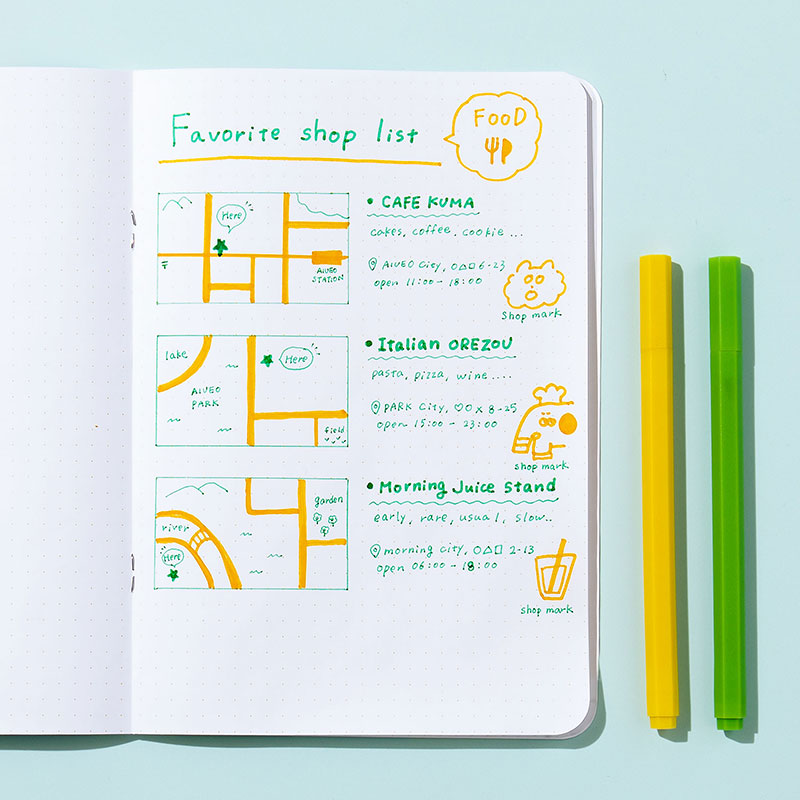 Favorite shop list
FooD
Here
AIUEO
STATION
• CAFE KUMA
cakes, coffee, cookie ...
AIUEO City, O△□ 6-23
open 11:00 - 18:00
Shop mark
lake
Here
AIUEO
PARK
field
• Italian OREZOU
pasta, pizza, wine ....
PARK City, ♡O× 8-25
open 15:00 - 23:00
shop mark
river
Here
garden
• Morning Juice Stand
early, rare, usual, slow..
morning city, O△□ 2-13
open 06:00 - 18:00
shop mark